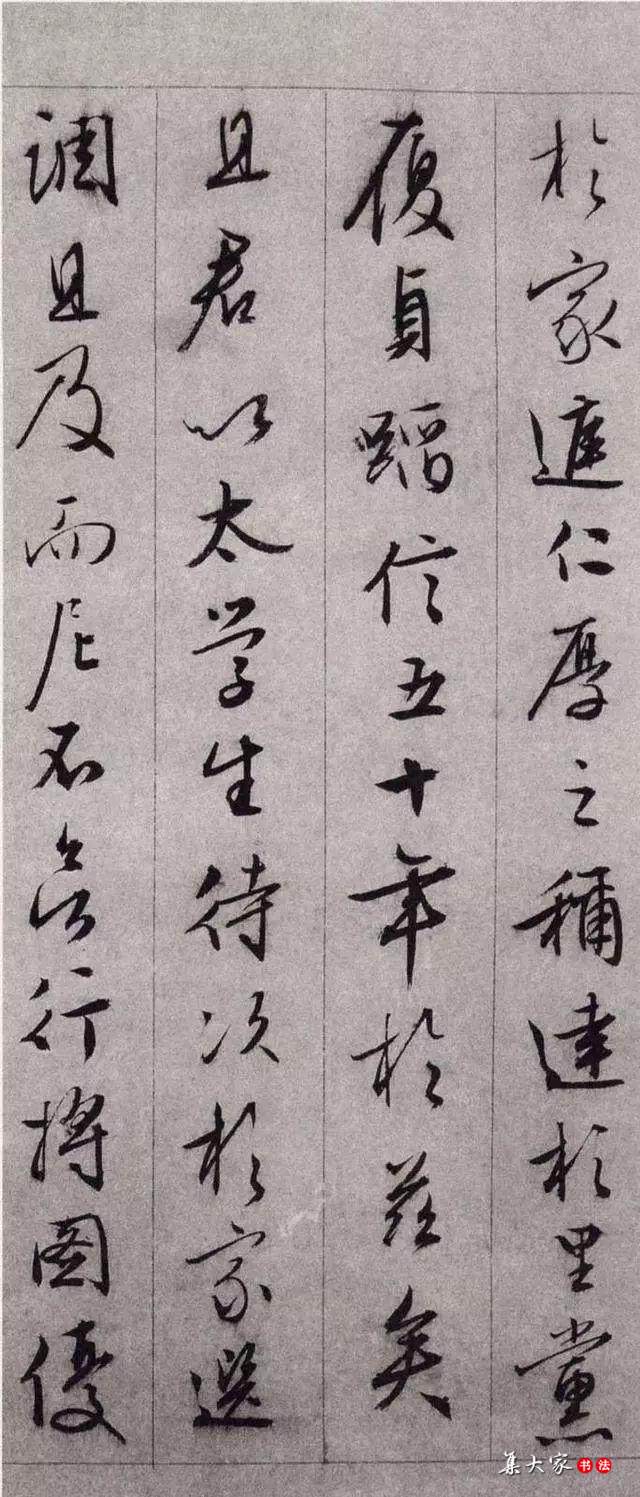 於家庭仁厚之稱達於里黨
履貞蹈信五十年於茲矣
且君以太學生待次於家選
調且及而不行將圖優
集大家书法